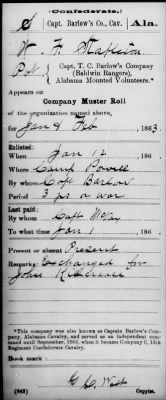 (Confederate.)
S Capt. Barlow's Co., Cav. Ala.
W. F. Stapleton
Pvt, Capt. T. C. Barlow's Company
(Baldwin Rangers),
Alabama Mounted Volunteers.*
Appears on
Company Muster Roll
of the organization named above,
for Jan & Feb, 1863.
Enlisted:
When Jan 12, 186 .
Where Camp Powell
By whom Capt Barlow
Period 3 yrs or war
Last paid:
By whom Capt McVoy
To what time Jan 1, 186 .
Present or absent Present
Remarks: Exchanged for
John
*This company was also known as Captain Barlow's Company, Alabama Cavalry, and served as an independent command until September, 1863, when it became Company C, 15th Regiment Confederate Cavalry.
Book mark:
(642) Copyist.